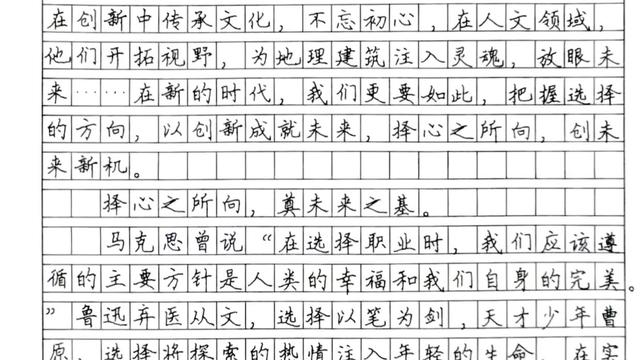 在创新中传承文化，不忘初心，在人文领域，
他们开拓视野，为地理建筑注入灵魂，放眼未
来……在新的时代，我们更要如此，把握选择
的方向，以创新成就未来，择心之所向，创未
来新机。
择心之所向，奠未来之基。
马克思曾说“在选择职业时，我们应该遵
循的主要方针是人类的幸福和我们自身的完美。
”鲁迅弃医从文，选择以笔为剑，天才少年曹
原，选择将探索的热情注入年轻的生命，在实